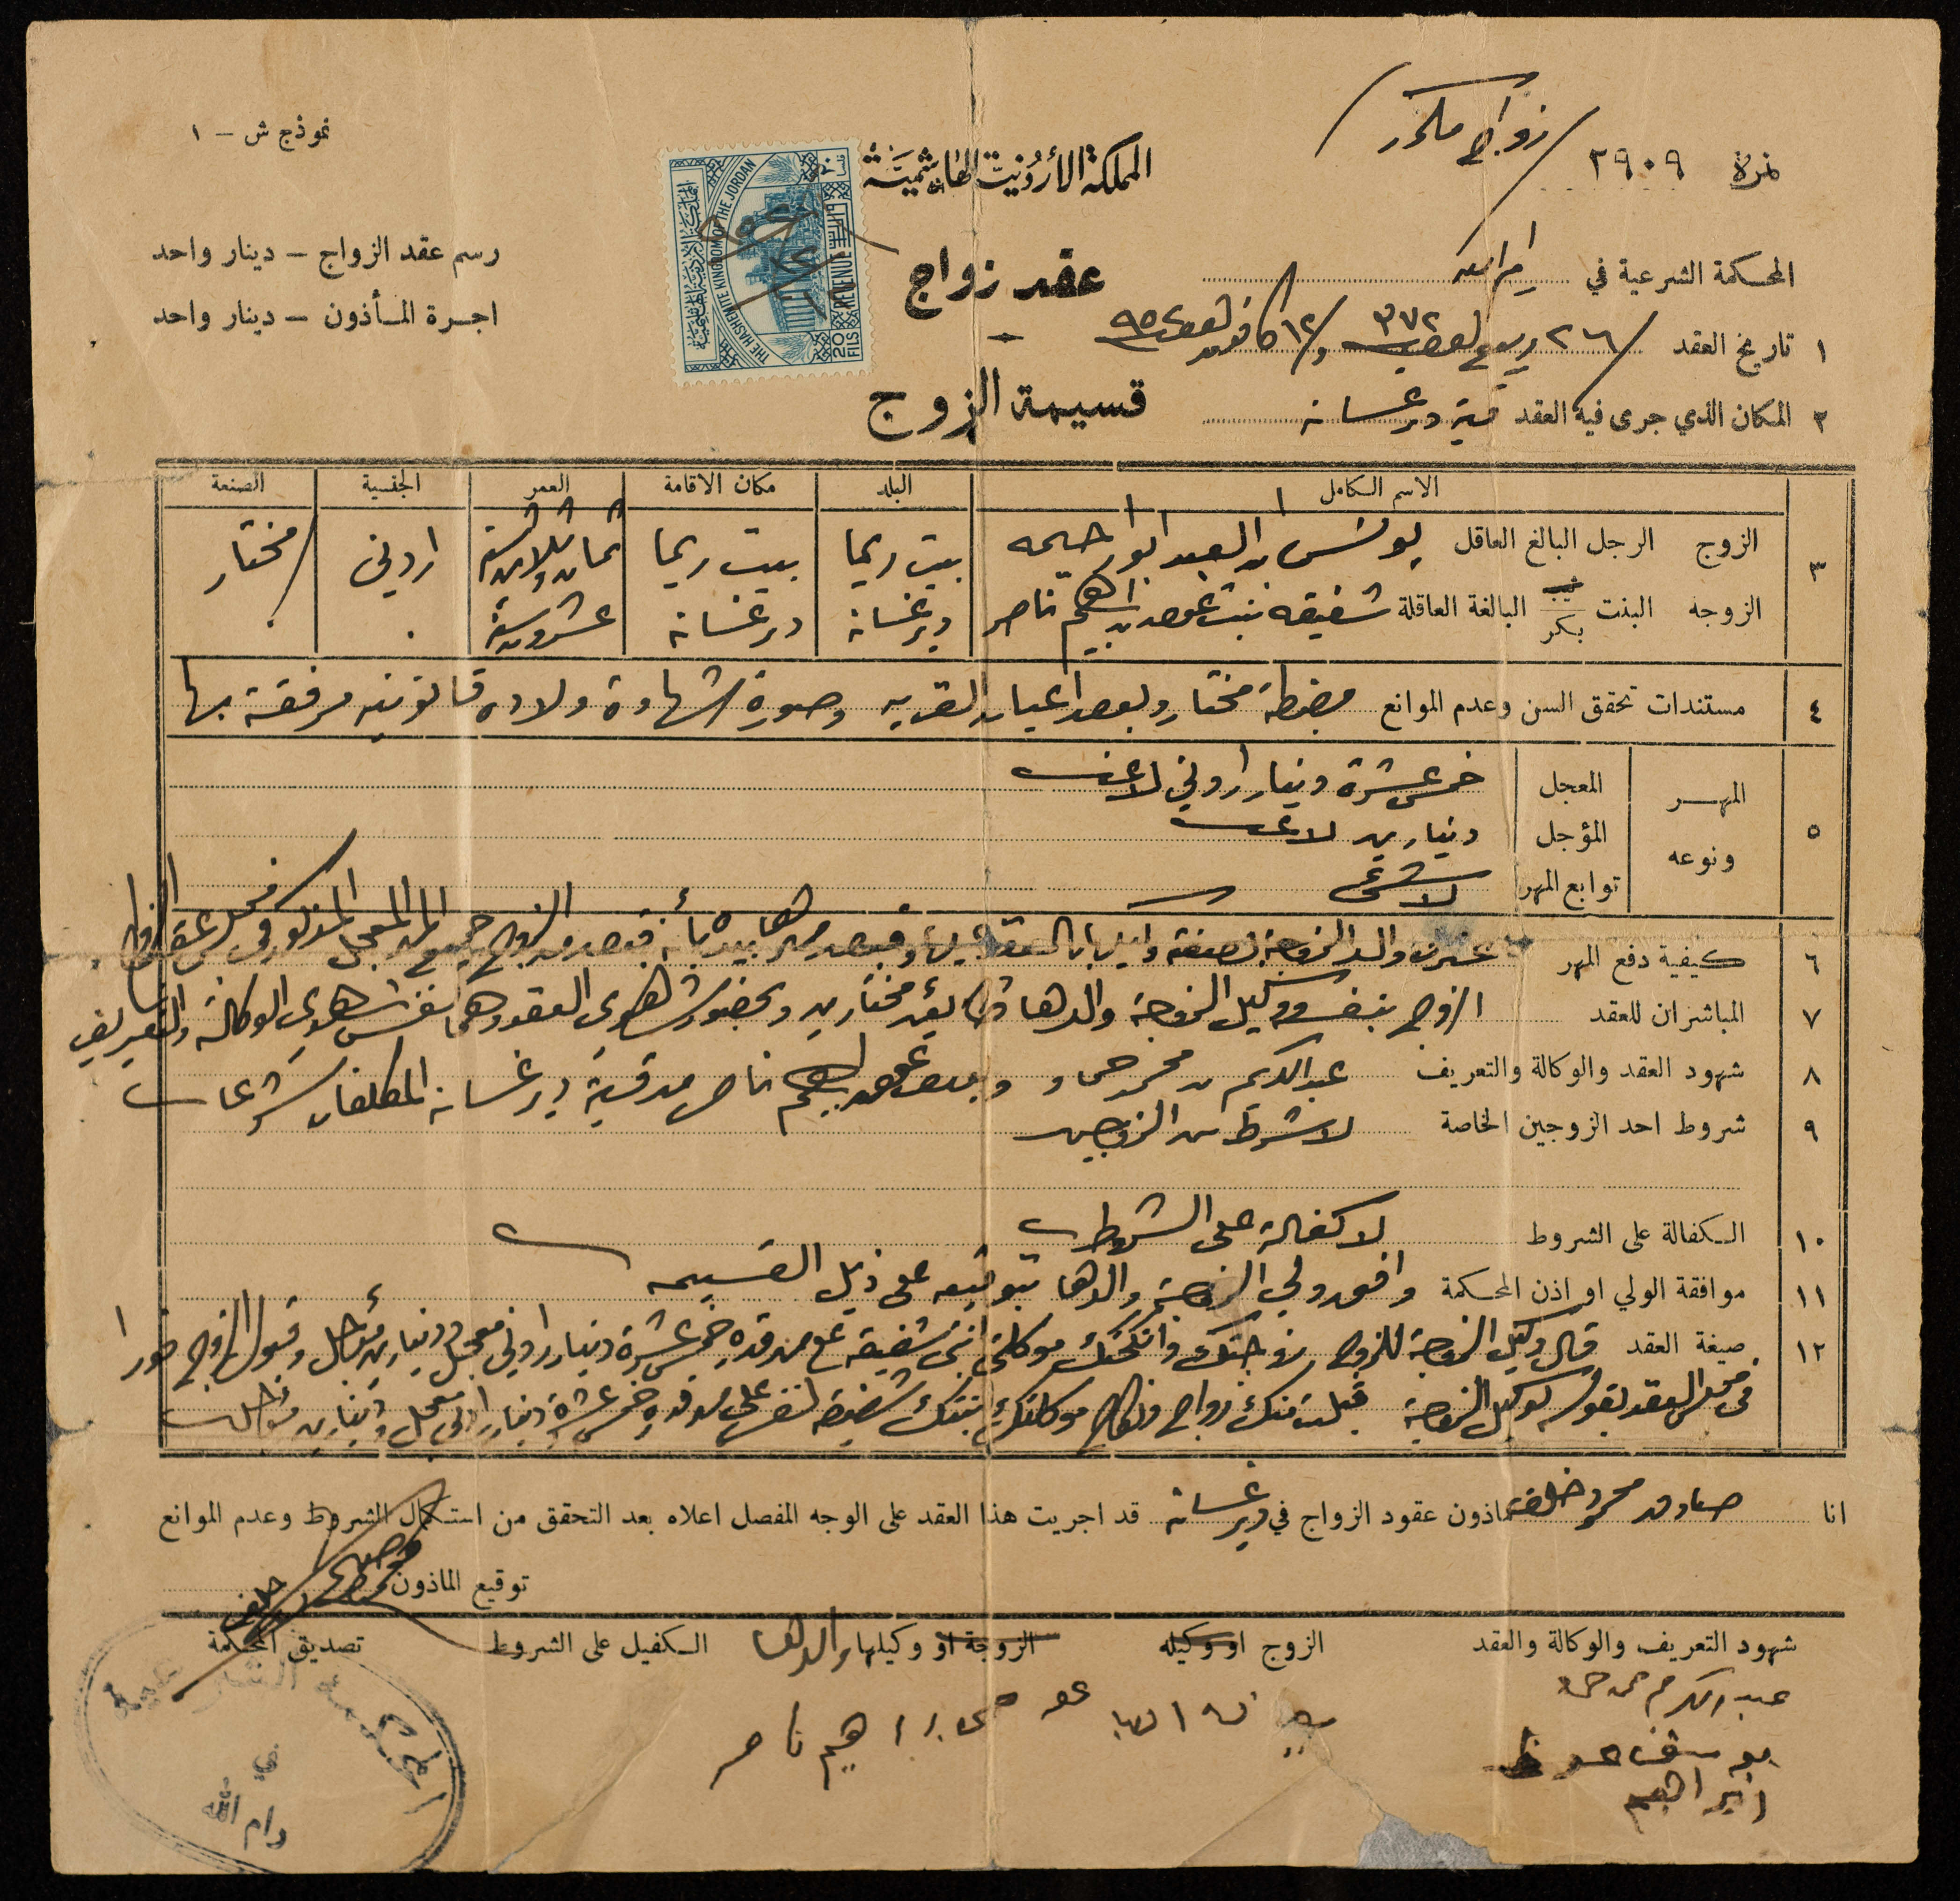 زواج مكرر
نمرة ٢٩٠٩
نموذج ش - ١
المملكة الأردنية الهاشمية
المملكة الاردنية الهاشمية
THE HASHEMITE KINGDOM OF THE JORDAN
REVENUE
20 FILS
المحكمة الشرعية في رام الله
عقد زواج
رسم عقد الزواج - دينار واحد
اجرة المأذون - دينار واحد
١ تاريخ العقد ٢٦ ربيع ٣٧٢ و ١٢ كانون ٩٥٢
٢ المكان الذي جرى فيه العقد قرية دير غسانه
قسيمة الزوج
الاسم الكامل البلد مكان الاقامة العمر الجنسية الصنعة
٣ الزوج الرجل البالغ العاقل يونس بن العبد ابو ارحيمه بيت ريما بيت ريما ثمان وثلاثون سنة اردني مختار
الزوجه البنت ثيب بكر البالغة العاقلة شفيقه بنت عوض بن ابراهيم ناصر دير غسانه دير غسانه عشرون سنة
٤ مستندات تحقق السن وعدم الموانع مضبطة مختار وبعض اعيان القريه وصورة شهادة ولاده قانونيه مرفقة بها
٥ المهر ونوعه المعجل خمس عشرة دينار اردني لا غير
المؤجل دينارين لا غير
توابع المهر لا شيء
٦ كيفية دفع المهر والد الزوجة بصفته وليها مهرها بيده بأنه قبض من الزوج جميع المهر المعجل المذكور في مجلس عقد
٧ المباشران للعقد الزوج بنفسه ووكيل الزوجة والدها مختارين وبحضور شاهدي العقد وهما نفس شاهدي الوكالة والتعريف
٨ شهود العقد والوكالة والتعريف عبد الكريم بن محمد حماد ويوسف عوض ابراهيم ناصر من قرية دير غسانه المكلفان شرعا
٩ شروط احد الزوجين الخاصة لا شرط من الزوجين
١٠ الكفالة على الشروط لا كفالة على الشروط
١١ موافقة الولي او اذن المحكمة وافق ولي الزوجة والدها بتوقيعه على ذيل القسيمه
١٢ صيغة العقد قال وكيل الزوجة للزوج زوجتك وانكحتك موكلتي ابنتي شفيقة على مهر قدره خمس عشرة دينار اردني معجل ودينارين مؤجل وقبول الزوج فورا
في مجلس العقد بقوله لوكيل الزوجة قبلت منك زواج ونكاح موكلتك بنتك شفيقه لنفسي على مهر قدره خمس عشرة دينار اردني معجل ودينارين مؤجل
انا صادق محمود خلف ماذون عقود الزواج في دير غسانه قد اجريت هذا العقد على الوجه المفصل اعلاه بعد التحقق من استكمال الشروط وعدم الموانع
توقيع الماذون
شهود التعريف والوكالة والعقد الزوج او وكيله الزوجة او وكيلها والدها الكفيل على الشروط تصديق المحكمة
عبد الكريم محمد حماد
يوسف عوض
ابراهيم
عوض ابراهيم ناصر
المحكمة الشرعية
في
رام الله